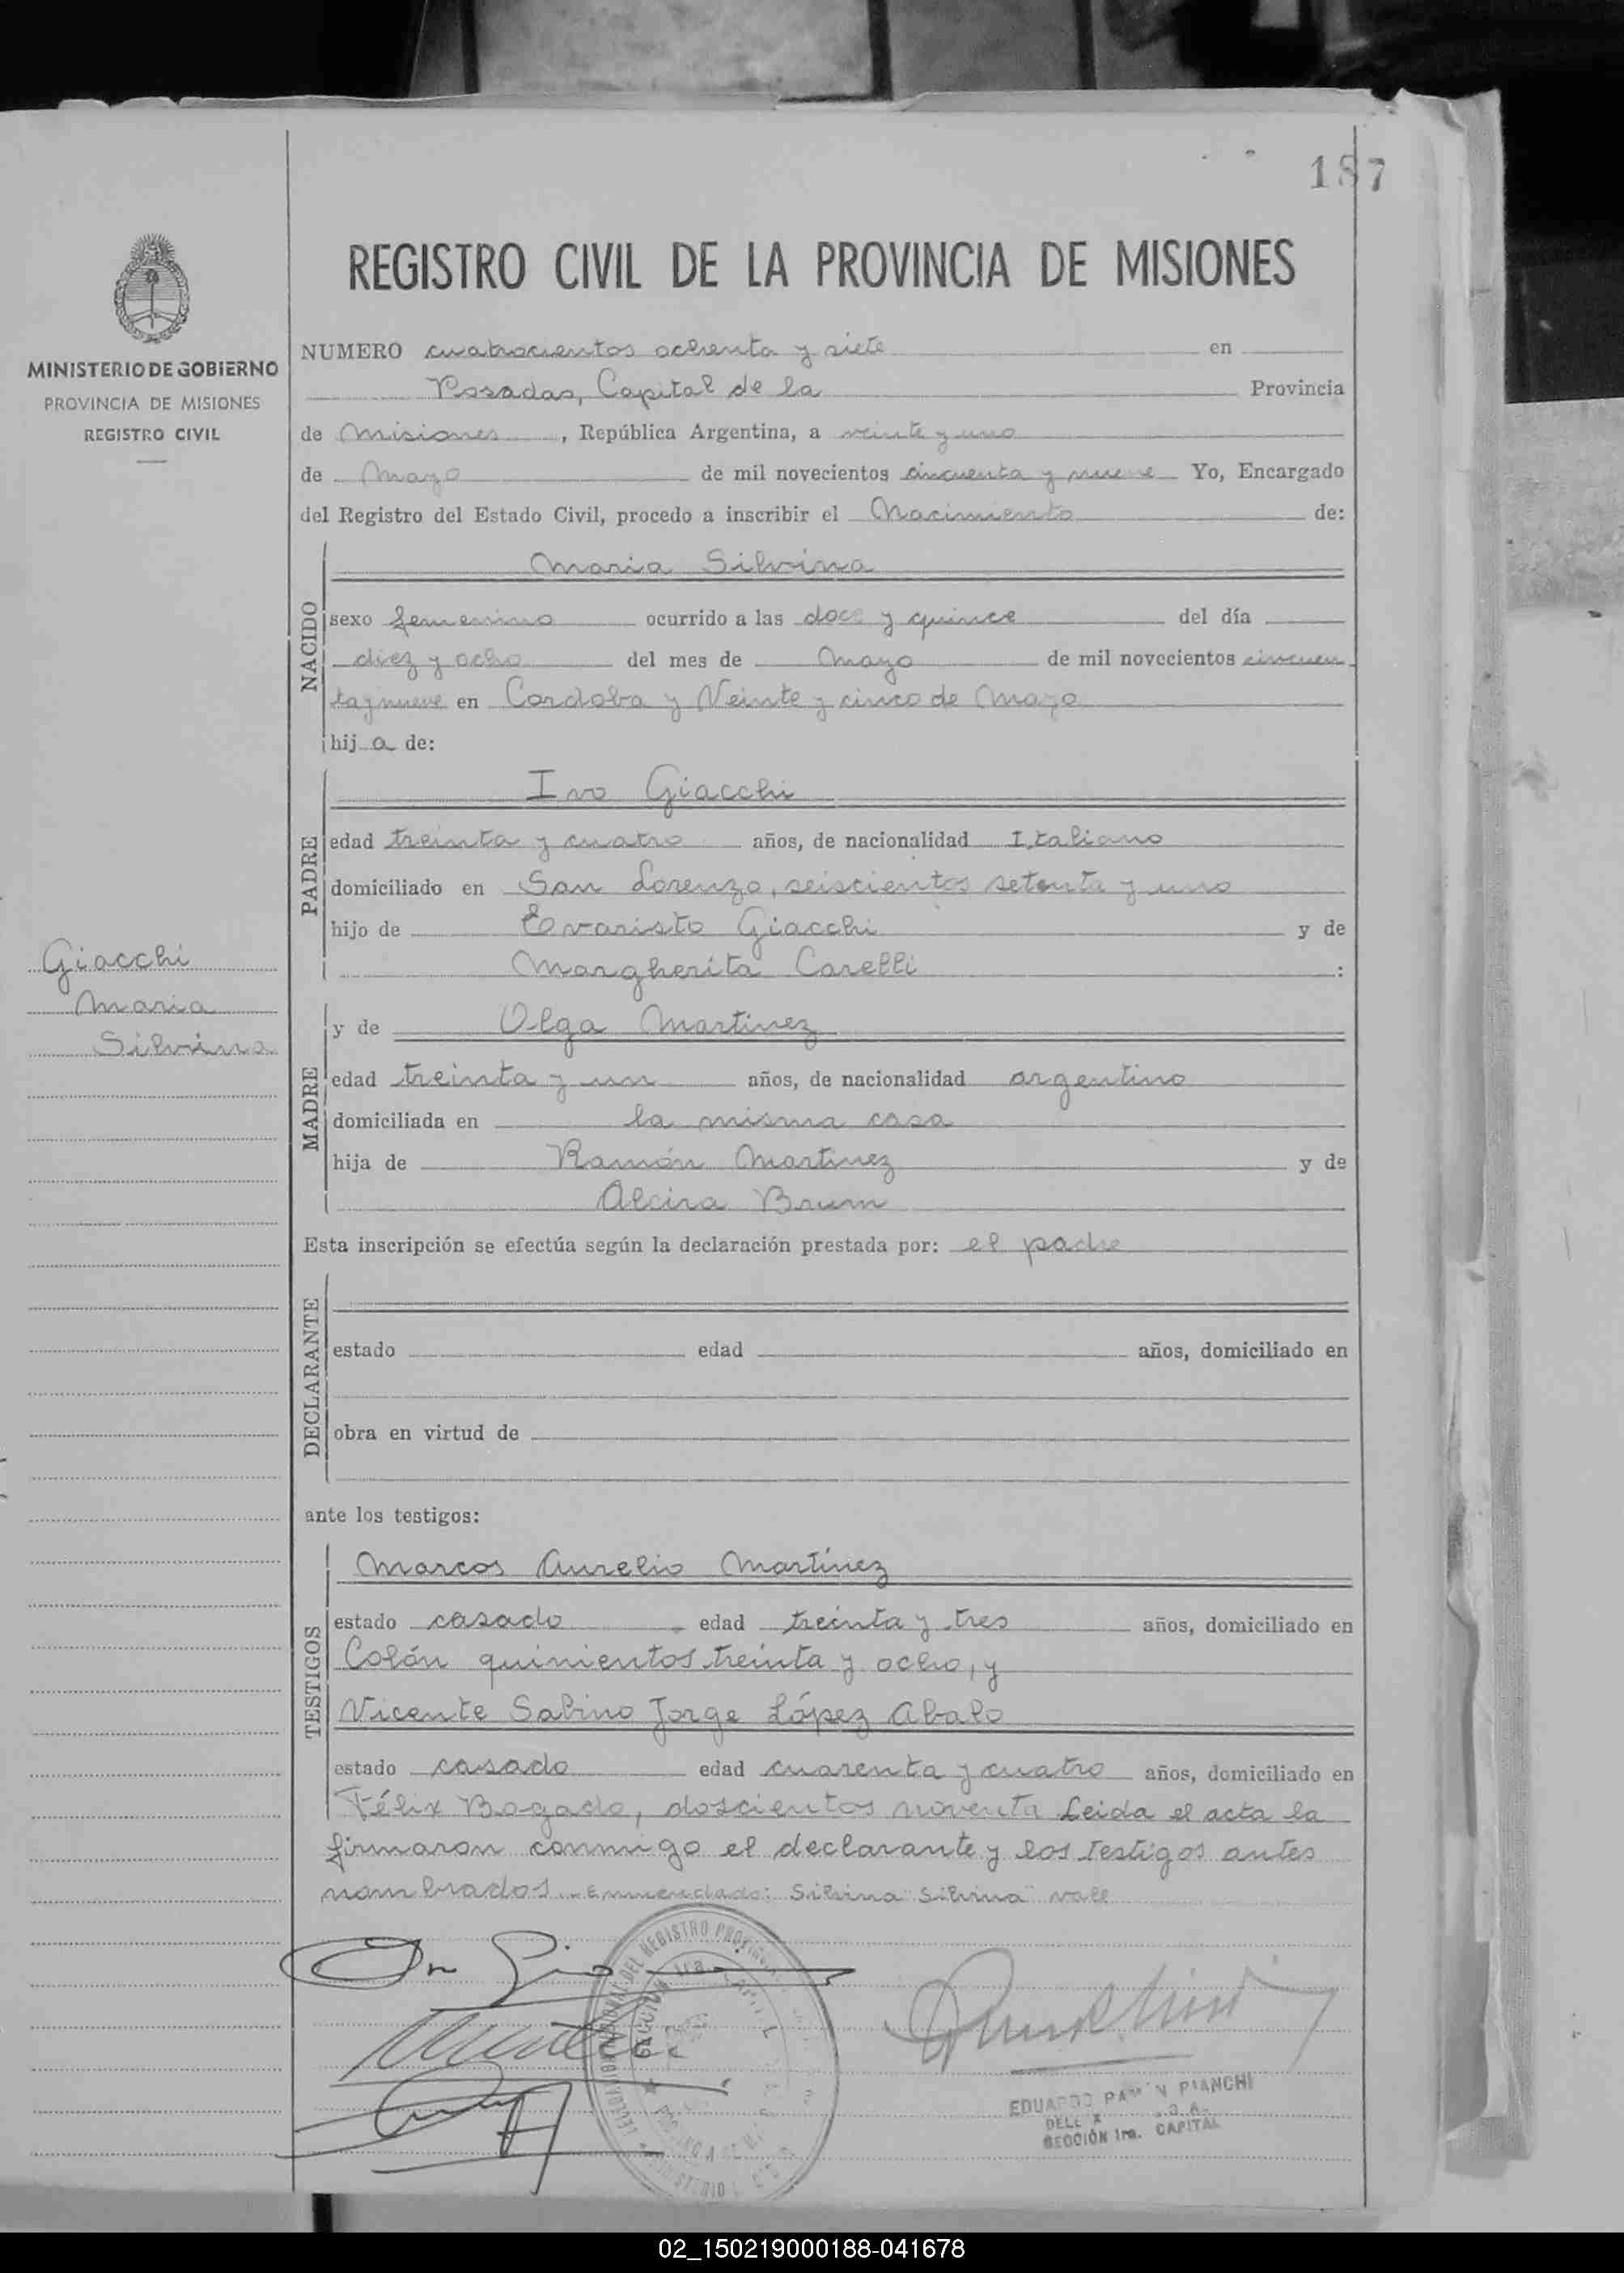 187
MINISTERIO DE GOBIERNO
PROVINCIA DE MISIONES
REGISTRO CIVIL
Giacchi
Maria
Silvina
REGISTRO CIVIL DE LA PROVINCIA DE MISIONES
NUMERO cuatrocientos ochenta y siete en
Posadas, Capital de la Provincia
de Misiones, República Argentina, a veinte y uno
de Mayo de mil novecientos cincuenta y nueve Yo, Encargado
del Registro del Estado Civil, procedo a inscribir el Nacimiento de:
NACIDO
Maria Silvina
sexo femenino ocurrido a las doce y quince del día
diez y ocho del mes de Mayo de mil novecientos cincuen
ta y nueve en Cordoba y Veinte y cinco de Mayo
hij a de:
PADRE
Ivo Giacchi
edad treinta y cuatro años, de nacionalidad Italiano
domiciliado en San Lorenzo, seiscientos setenta y uno
hijo de Evaristo Giacchi y de
Margherita Carelli :
MADRE
y de Olga Martinez
edad treinta y un años, de nacionalidad argentino
domiciliada en la misma casa
hija de Ramón Martinez y de
Alcira Brum
Esta inscripción se efectúa según la declaración prestada por: el padre
DECLARANTE
estado edad años, domiciliado en
obra en virtud de
ante los testigos:
TESTIGOS
Marcos Aurelio Martínez
estado casado edad treinta y tres años, domiciliado en
Colón quinientos treinta y ocho, y
Vicente Sabino Jorge López Abalo
estado casado edad cuarenta y cuatro años, domiciliado en
Félix Bogado, doscientos noventa Leida el acta la
firmaron conmigo el declarante y los testigos antes
nombrados. Enmendado: Silvina Silvina vale
DEL REGISTRO
SECCION 1ra.
EDUARDO RAMON PIANCHI
SECCIÓN 1ra. CAPITAL
02_150219000188-041678